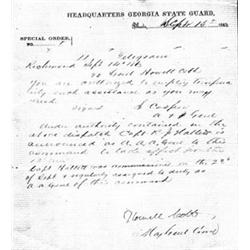 HEADQUARTERS GEORGIA STATE GUARD,
Sept 15th 186
SPECIAL ORDER,
No.
Telegram
Richmond Sept 14th
Genl Howell Cobb
You are authorized to employ temporarily
such assistance as you may
need
Signed S Cooper
A & I Genl
Under authority contained in the
above dispatch Capt R J Hallett is
announced as A.A.A. Genl to this
command to take effect from the
Capt Hallett was commissioned on the 22d
of Sept & regularly assigned to duty as
A A Genl of this command
Howell Cobb
Maj Genl Comd